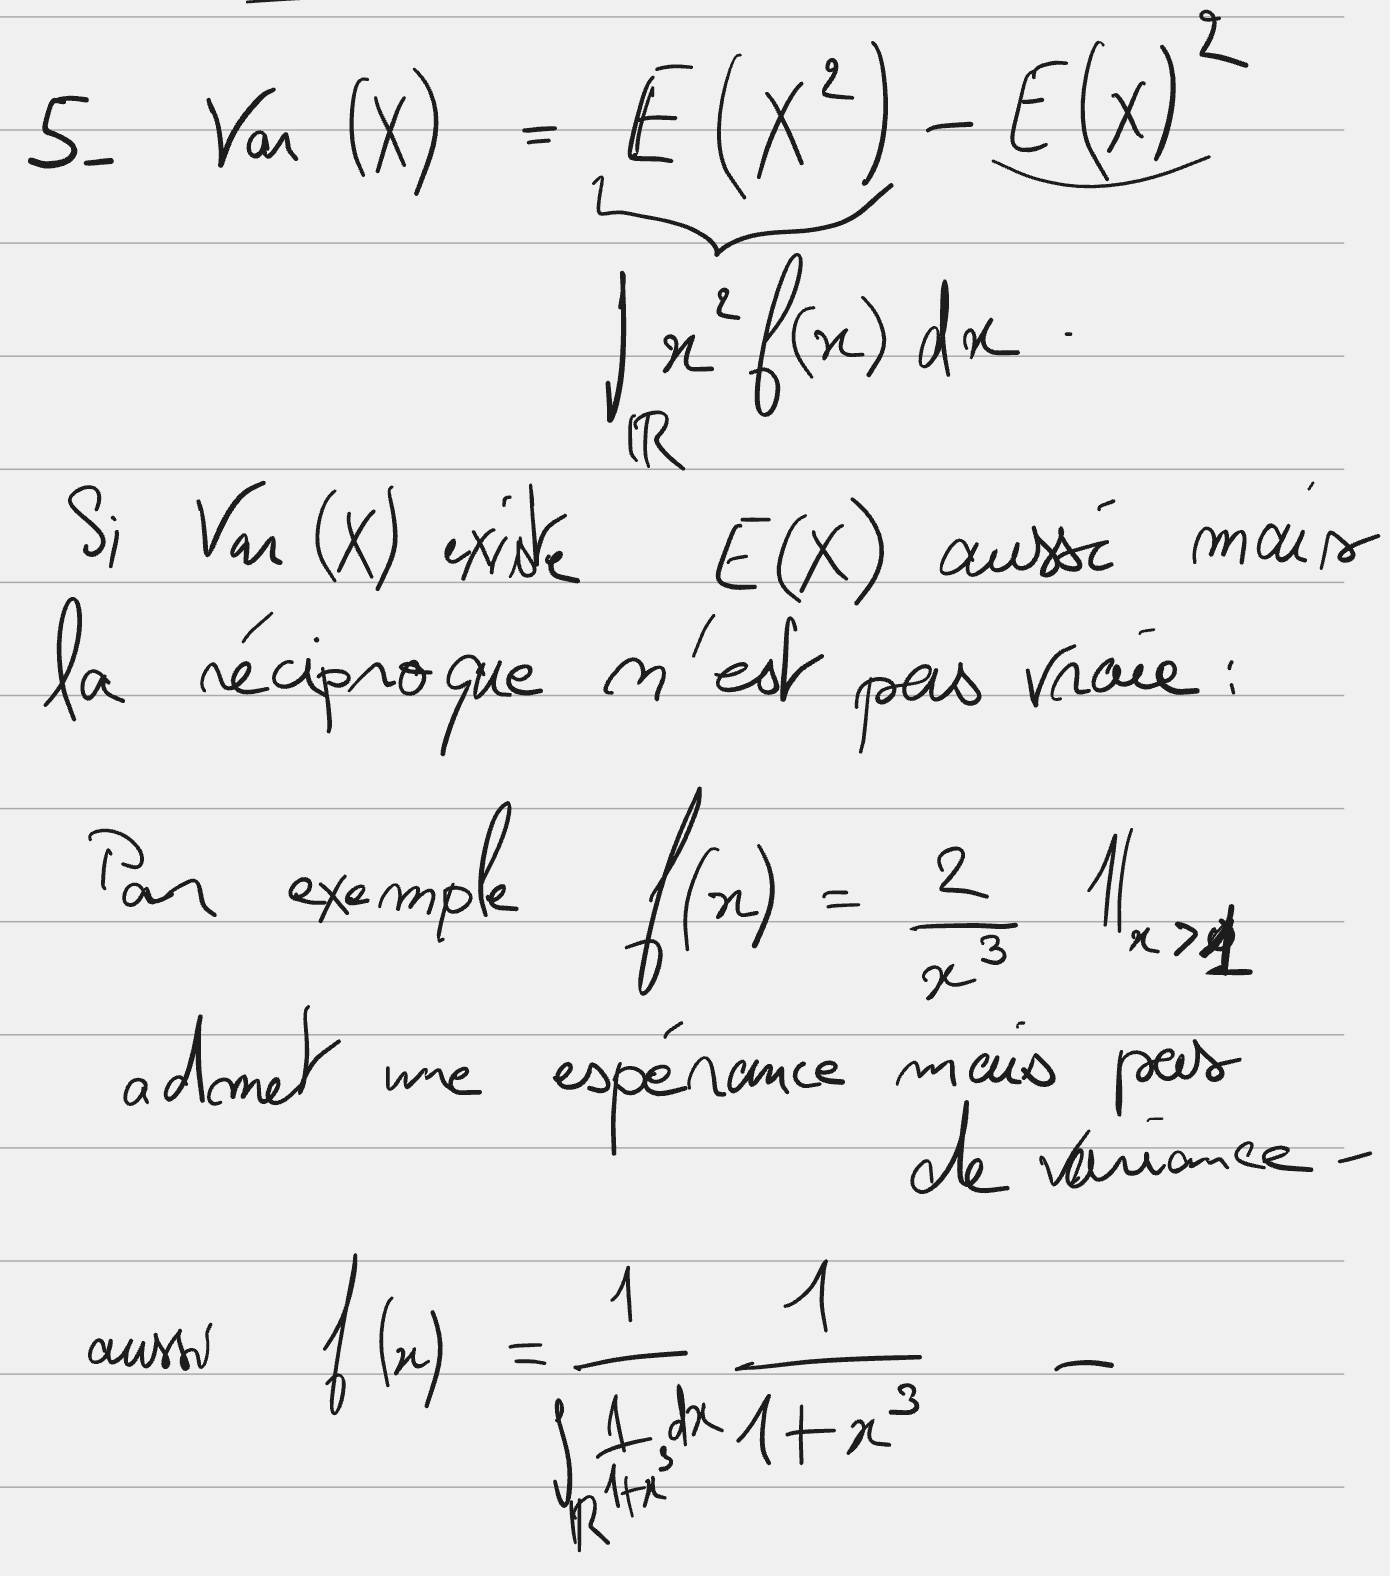 5- Var (X) = E(X²) - E(X)²
∫_ℝ x² f(x) dx .
Si Var (X) existe E(X) aussi mais
la réciproque n'est pas vraie :
Par exemple f(x) = 2/x³ 𝟙_{x>1}
admet une espérance mais pas
de variance -
aussi f(x) = 1/(∫_ℝ 1/(1+x³) dx) 1/(1+x³) -